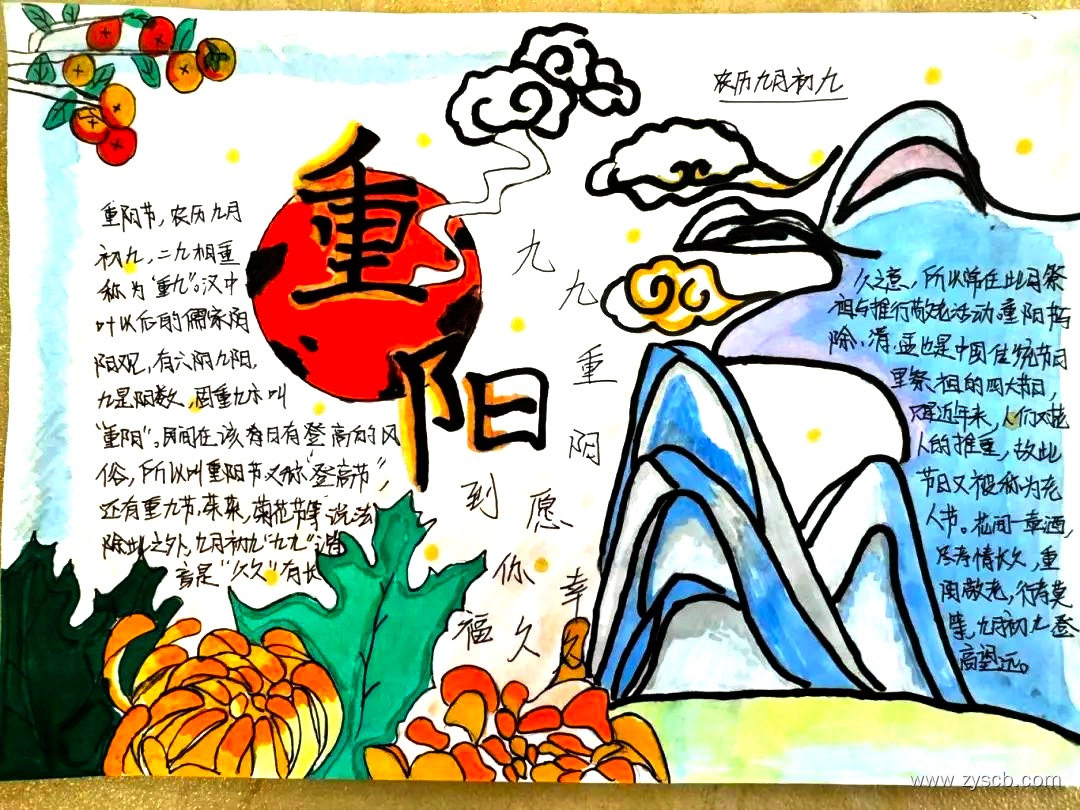 农历九月初九
重阳
重阳节,农历九月
初九,二九相重
称为"重九"。汉中
叶以后的儒家阴
阳观,有六阴九阳。
九是阳数,固重九亦叫
"重阳"。民间在该日有登高的风
俗,所以叫重阳节又称"登高节",
还有重九节,茱萸,菊花节等说法
除此之外,九月初九"九九"谐
音是"久久"有长
九九重阳
到
愿你幸
福久久
久之意,所以常在此日祭
祖与推行敬老活动。重阳节与
除,清,盂也是中国传统节日
里祭祖的四大节日,
近年来,人们对老
人的推重,故此
节日又被称为老
人节。花间一壶酒,
尽孝情长久,重
阳敬老,行孝莫
等,九月初九登
高望远。
www.zyscb.com